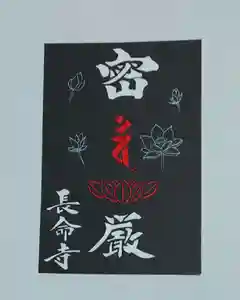 密
厳
長命寺